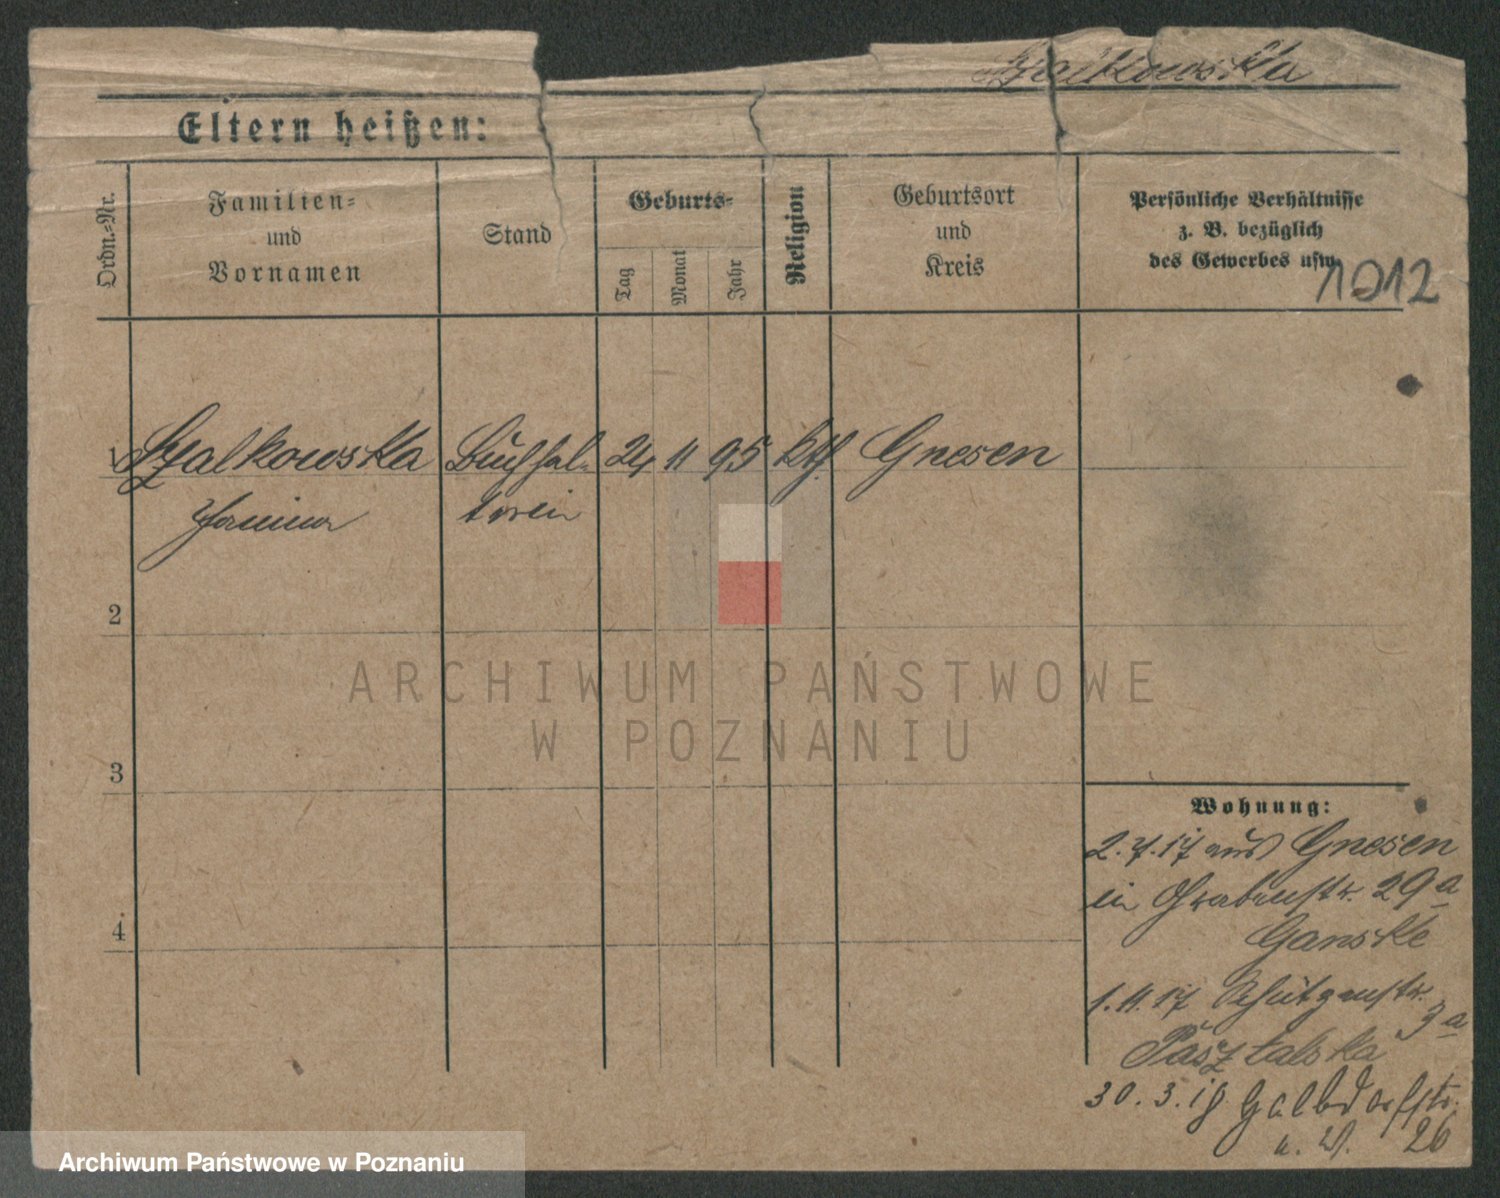 Szalkowska
Eltern heißen:
Ordn.-Nr.
Familien-
und
Vornamen
Stand
Geburts-
Tag
Monat
Jahr
Religion
Geburtsort
und
Kreis
Persönliche Verhältnisse
z. B. bezüglich
des Gewerbes usw.
1012
1 Szalkowska Buchhal- 24 11 95 kth. Gnesen
Janina torin
2
3
4
Wohnung:
2.7.17 aus Gnesen
in Grabenstr. 29a
Ganske
1.11.17 Schützenstr.
3a
30.3.18
26
ARCHIWUM PAŃSTWOWE
W POZNANIU
Archiwum Państwowe w Poznaniu